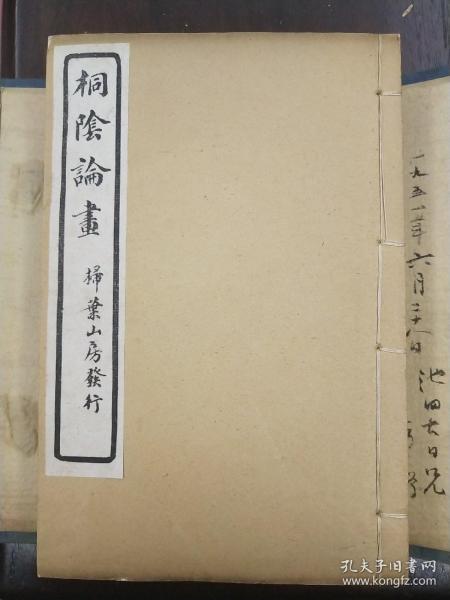 桐陰論畫
掃葉山房發行
一九五一年六月二十八日
池田大日兄
孔夫子旧书网
www.kongfz.com